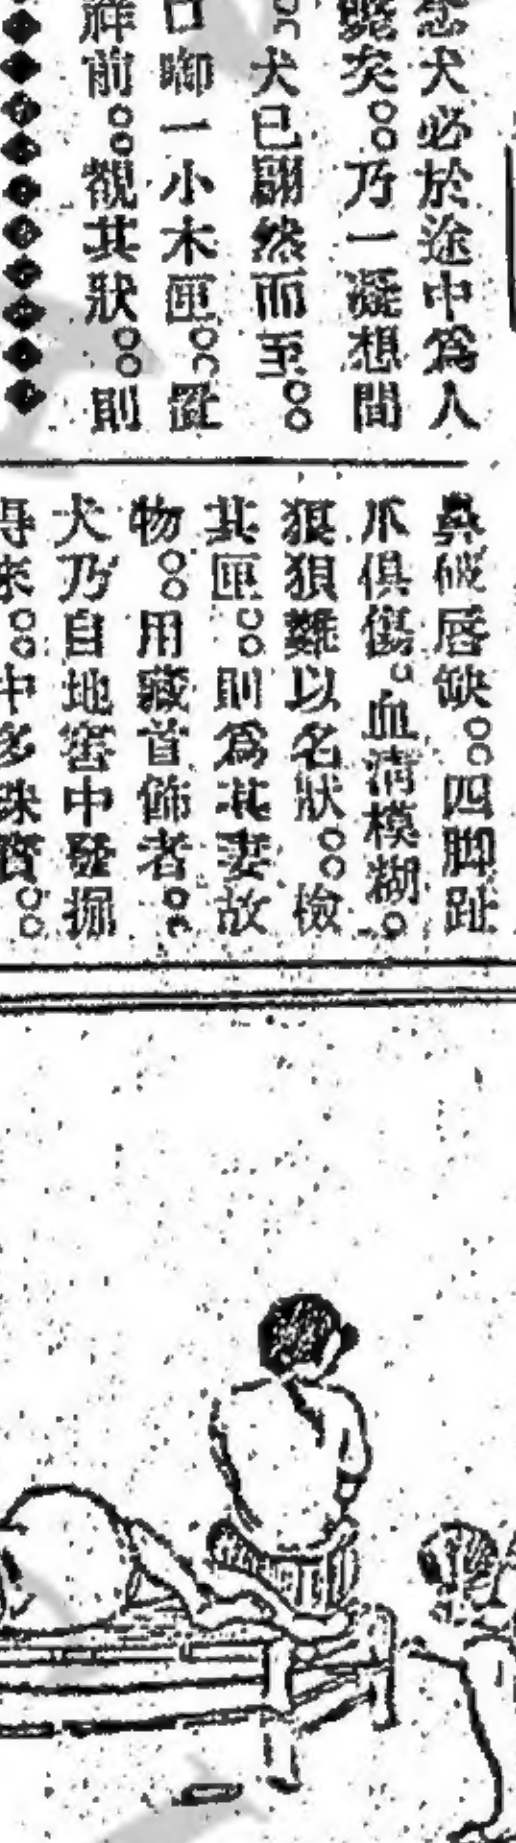 念犬必於途中爲人
斃矣。乃一凝想間
。犬已翩然而至。
口啣一小木匣。置
祥前。觀其狀。則
鼻破唇缺。四脚趾
爪俱傷。血淸模糊。
狼狽難以名狀。檢
其匣。則爲其妻故
物。用藏首飾者。
犬乃自地窖中發掘
得來。中多珠寶。